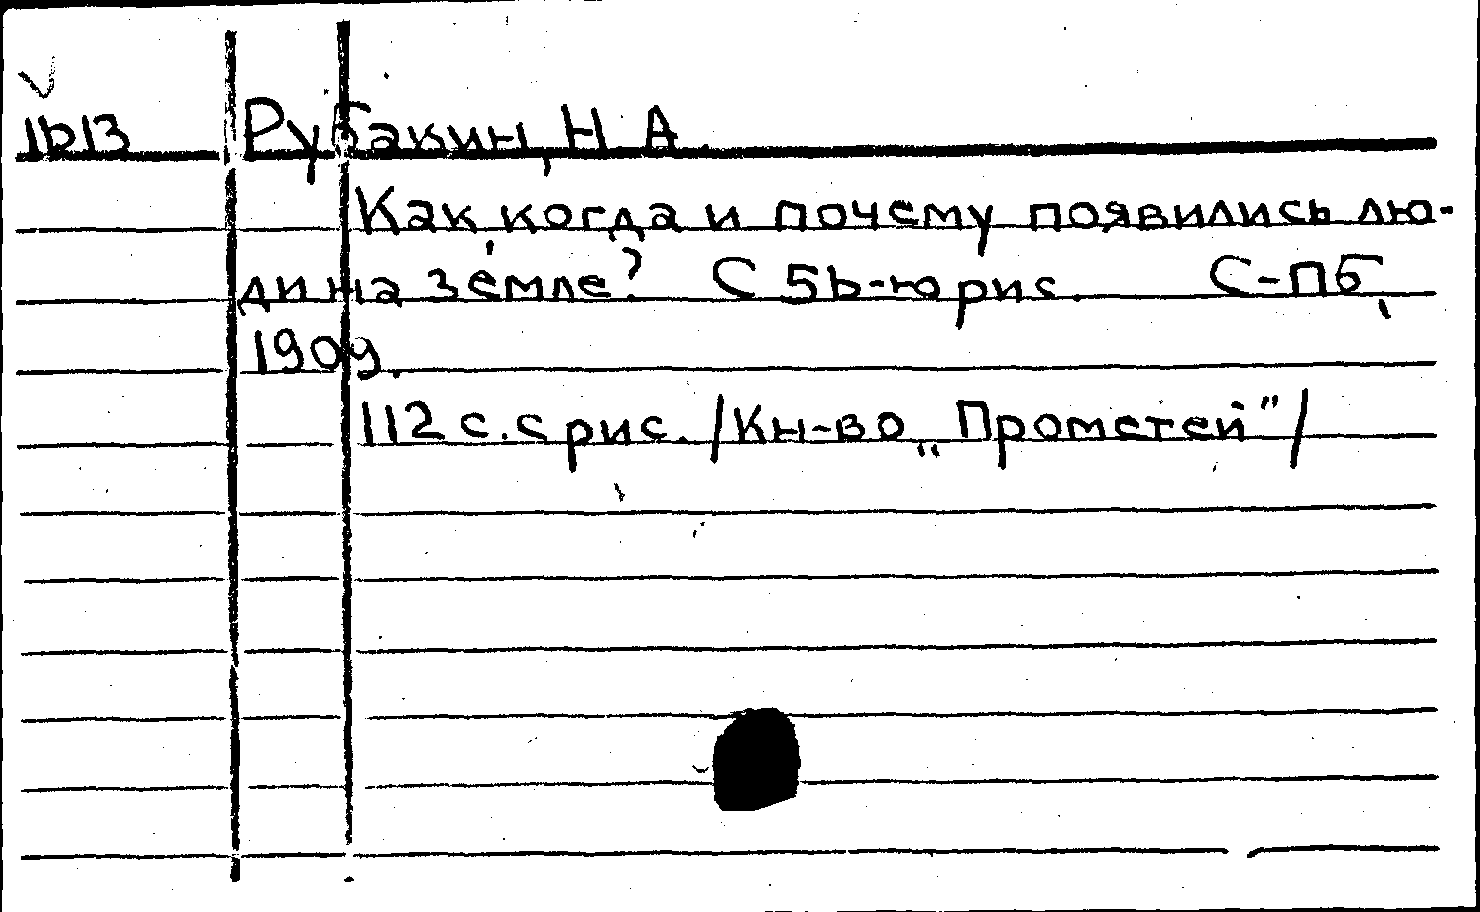 1613 Рубакин, Н. А.
Как, когда и почему появились лю-
ди на земле? С 56-ю рис. С-Пб,
1909.
112 с. с рис. /Кн-во „Прометей"/